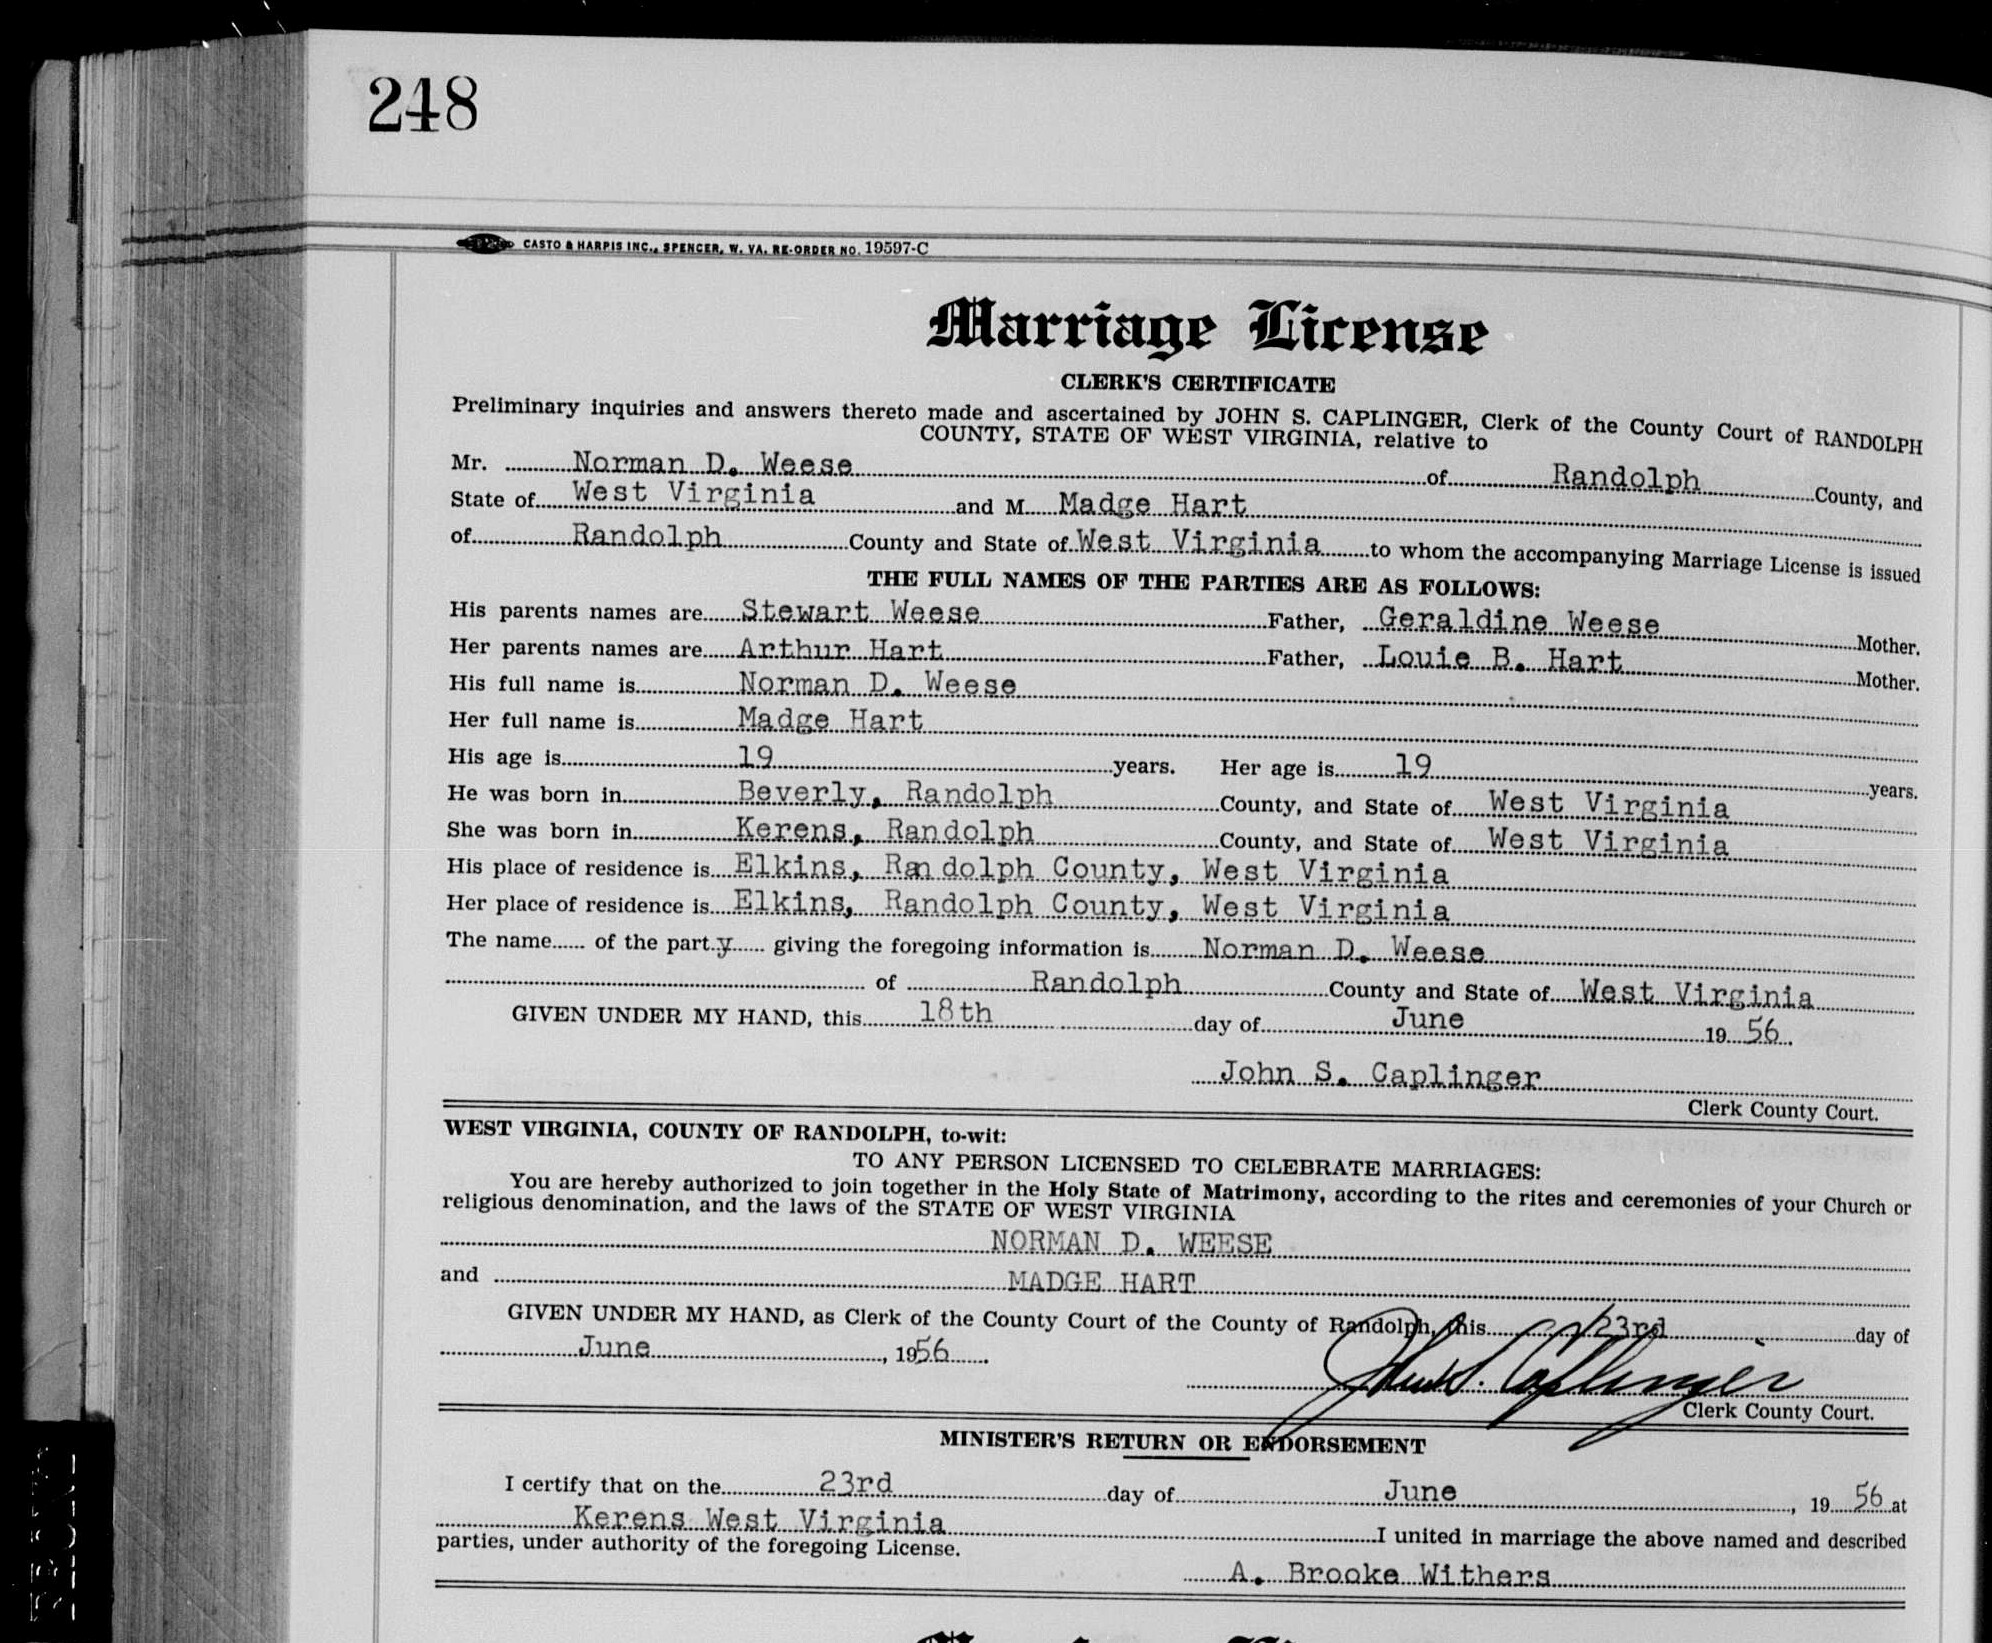 248
CASTO & HARRIS INC., SPENCER, W. VA. RE-ORDER NO. 19597-C
Marriage License
CLERK'S CERTIFICATE
Preliminary inquiries and answers thereto made and ascertained by JOHN S. CAPLINGER, Clerk of the County Court of RANDOLPH
COUNTY, STATE OF WEST VIRGINIA, relative to
Mr. Norman D. Weese of Randolph County, and
State of West Virginia and M Madge Hart
of Randolph County and State of West Virginia to whom the accompanying Marriage License is issued
THE FULL NAMES OF THE PARTIES ARE AS FOLLOWS:
His parents names are Stewart Weese Father, Geraldine Weese Mother.
Her parents names are Arthur Hart Father, Louie B. Hart Mother.
His full name is Norman D. Weese
Her full name is Madge Hart
His age is 19 years. Her age is 19 years.
He was born in Beverly, Randolph County, and State of West Virginia
She was born in Kerens, Randolph County, and State of West Virginia
His place of residence is Elkins, Randolph County, West Virginia
Her place of residence is Elkins, Randolph County, West Virginia
The name of the party giving the foregoing information is Norman D. Weese
of Randolph County and State of West Virginia
GIVEN UNDER MY HAND, this 18th day of June 1956.
John S. Caplinger
Clerk County Court.
WEST VIRGINIA, COUNTY OF RANDOLPH, to-wit:
TO ANY PERSON LICENSED TO CELEBRATE MARRIAGES:
You are hereby authorized to join together in the Holy State of Matrimony, according to the rites and ceremonies of your Church or
religious denomination, and the laws of the STATE OF WEST VIRGINIA
NORMAN D. WEESE
and MADGE HART
GIVEN UNDER MY HAND, as Clerk of the County Court of the County of Randolph, this 23rd day of
June, 1956
John S. Caplinger
Clerk County Court.
MINISTER'S RETURN OR ENDORSEMENT
I certify that on the 23rd day of June, 1956 at
Kerens West Virginia I united in marriage the above named and described
parties, under authority of the foregoing License.
A. Brooke Withers